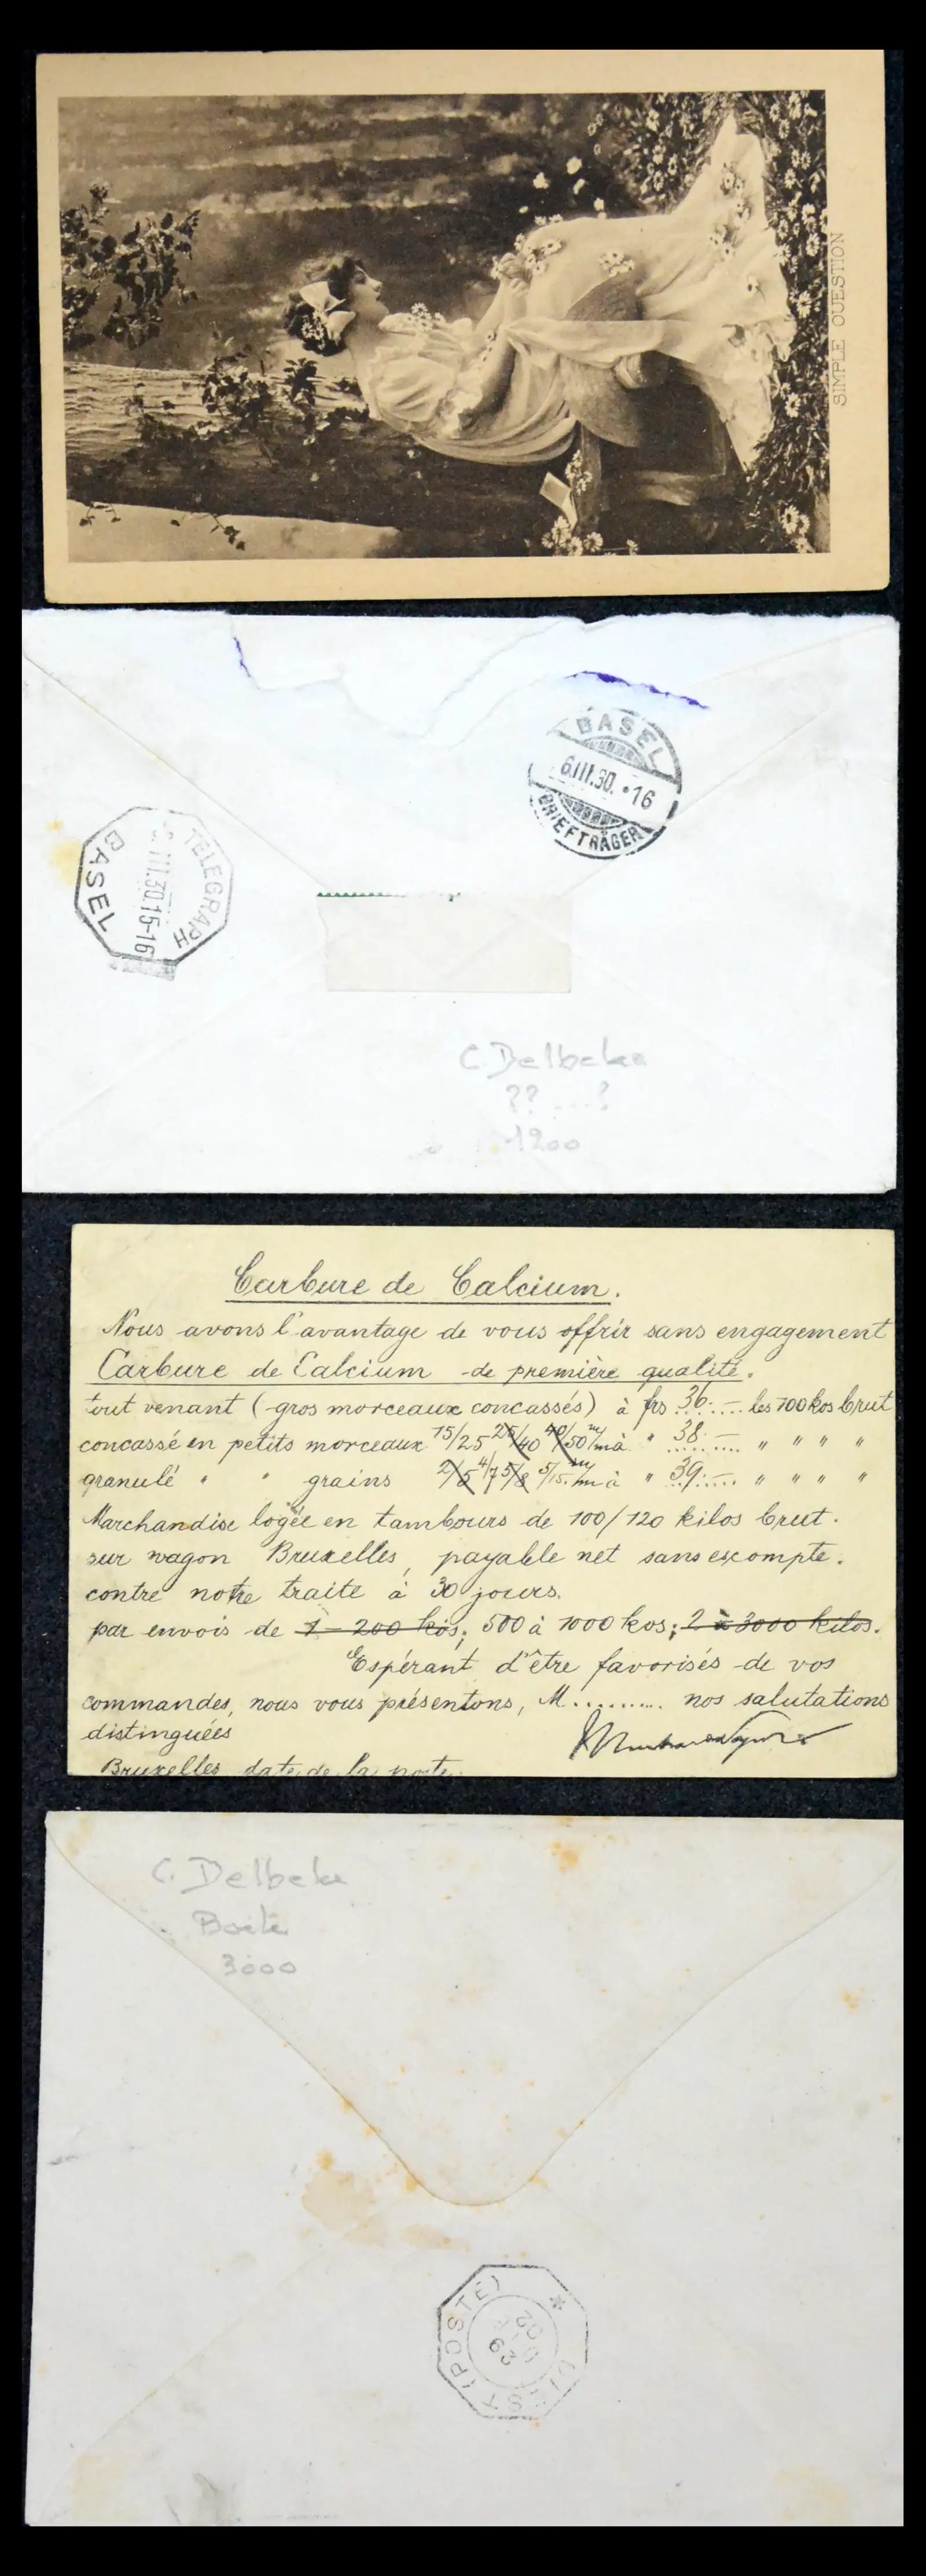 SIMPLE QUESTION
BASEL
6.III.30. •16
BRIEFTRÄGER
TELEGRAPH
III.30.15-16
BASEL
C. Delbeke
?? ...?
1200
Carbure de Calcium.
Nous avons l'avantage de vous offrir sans engagement
Carbure de Calcium de première qualité.
tout venant (gros morceaux concassés) à frs 36.- les 100 kos brut
concassé en petits morceaux 15/25 25/40 40/50 m/m à " 38.- " " " "
granulé " " grains 2/5 4/7 5/8 5/15 m/m à " 39.- " " " "
Marchandise logée en tambours de 100/120 kilos brut.
sur wagon Bruxelles, payable net sans escompte.
contre notre traite à 30 jours.
par envois de 1 - 200 kos; 500 à 1000 kos; 2 à 3000 kilos.
Espérant d'être favorisés de vos
commandes, nous vous présentons, M.......... nos salutations
distinguées
Bruxelles date de la poste.
C. Delbeke
Boite
3000
(POSTE)